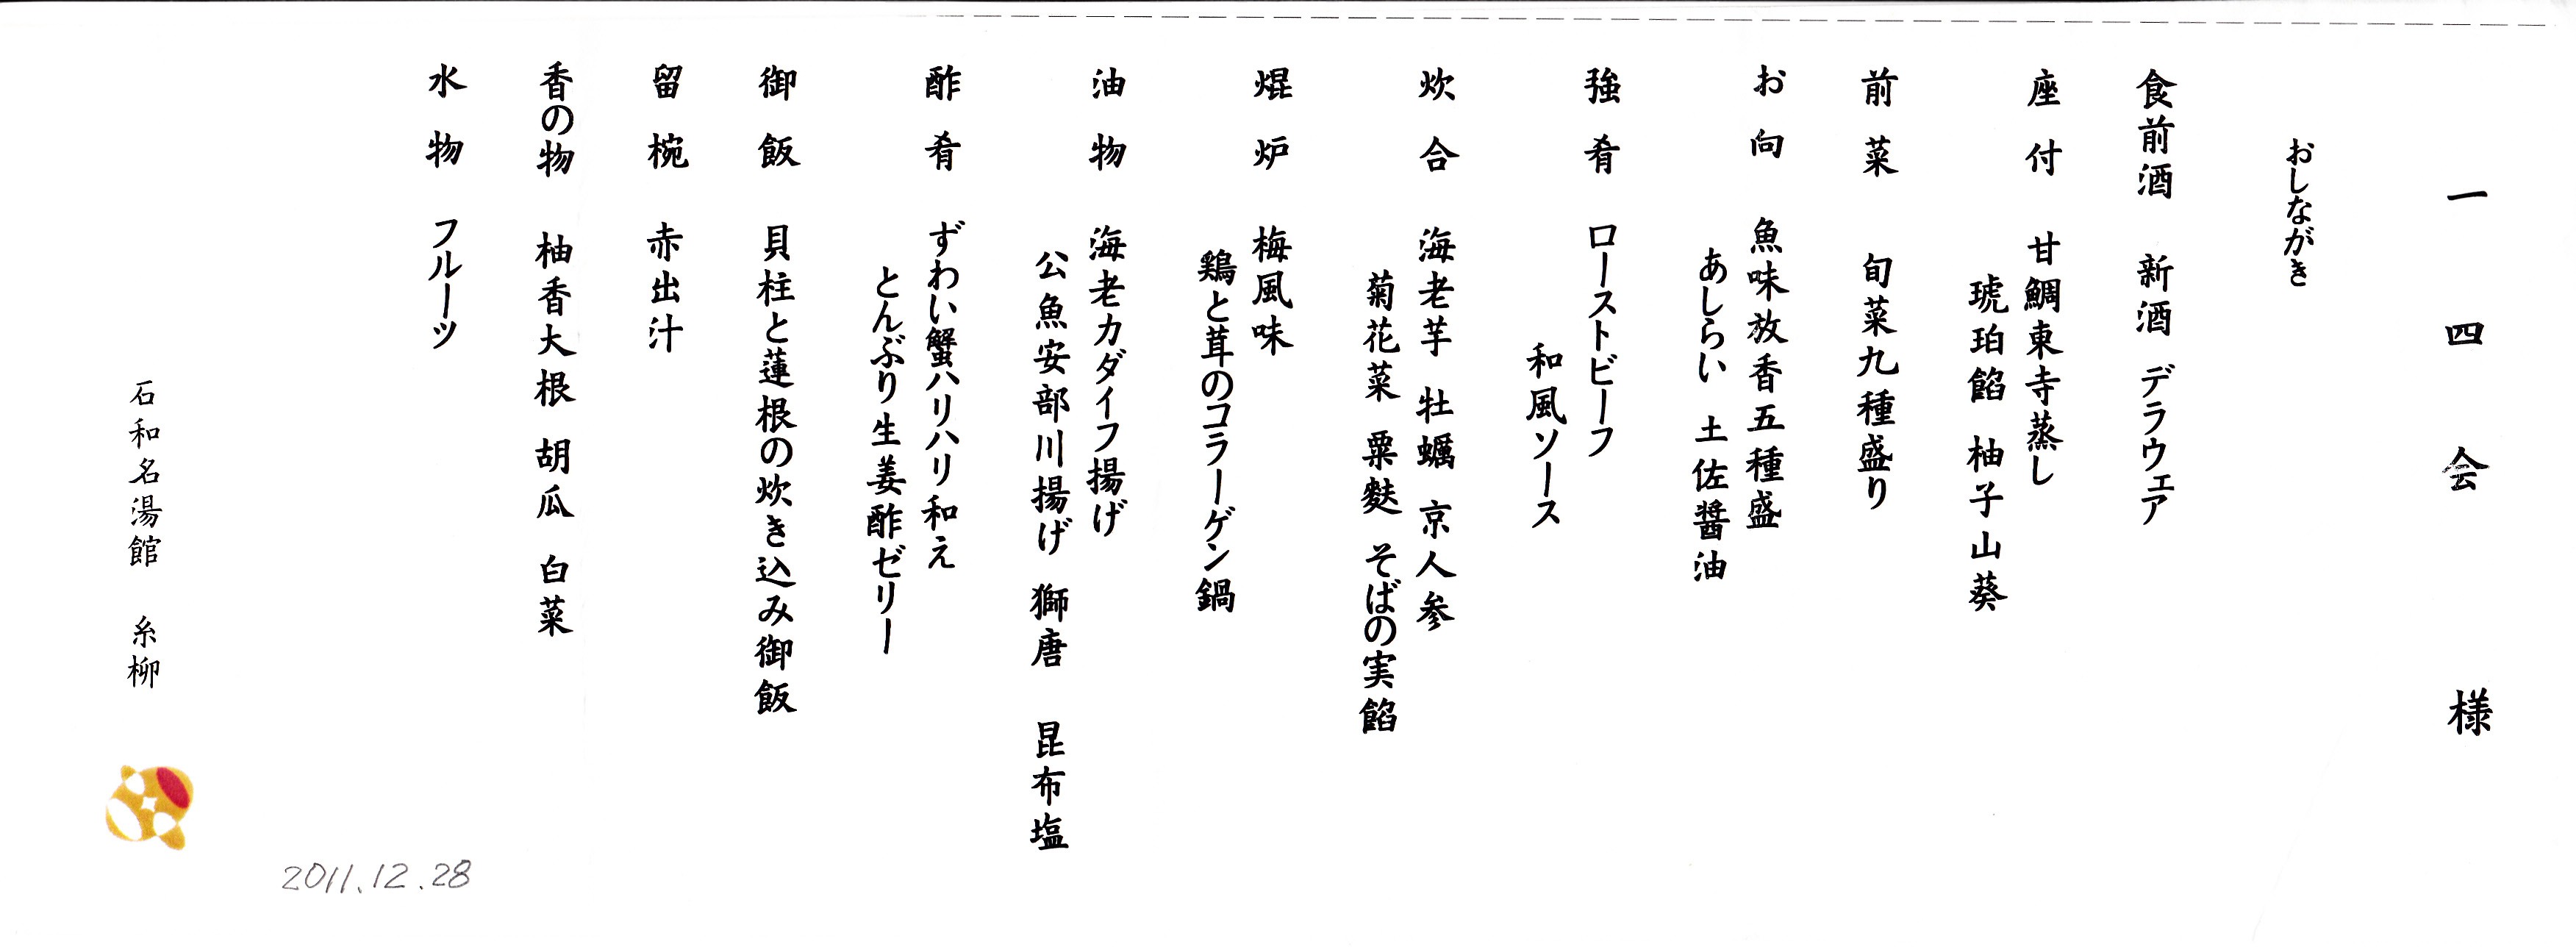 一四会 様
おしながき
食前酒 新酒 デラウェア
座付 甘鯛東寺蒸し
琥珀餡 柚子山葵
前菜 旬菜九種盛り
お向 魚味放香五種盛
あしらい 土佐醤油
強肴 ローストビーフ
和風ソース
炊合 海老芋 牡蠣 京人参
菊花菜 粟麩 そばの実餡
焜炉 梅風味
鶏と茸のコラーゲン鍋
油物 海老カダイフ揚げ
公魚安部川揚げ 獅唐 昆布塩
酢肴 ずわい蟹ハリハリ和え
とんぶり生姜酢ゼリー
御飯 貝柱と蓮根の炊き込み御飯
留椀 赤出汁
香の物 柚香大根 胡瓜 白菜
水物 フルーツ
石和名湯館 糸柳
2011.12.28